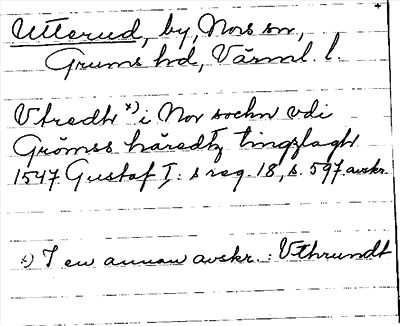 Utterud, by, Nors sn,
Grums hd, Värml. l.
Vtredt x) i Nor sochn vdi
Grömss häredtz tingzlagh
1547 Gustaf I: s reg. 18, s. 597. avskr.
x) I en annan avskr.: Vthrundt